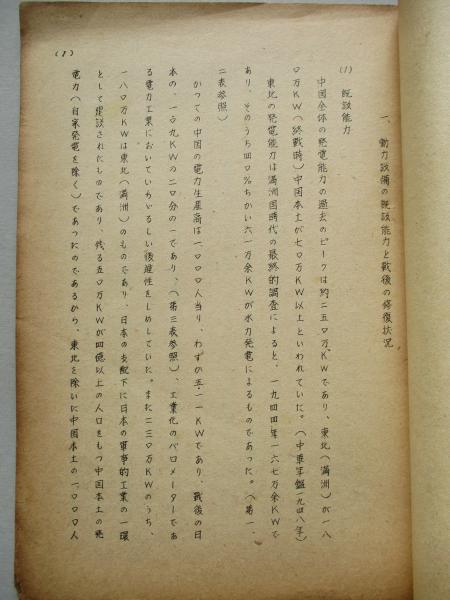 (1)
一、動力設備の既設能力と戦後の修復状況
(1) 既設能力
中国全体の発電能力の過去のピークは約二五〇万KWであり、東北(満洲)が一八
〇万KW(終戦時)中国本土が七〇万KW以上といわれていた。(中華年鑑一九四八年)
東北の発電能力は満洲国時代の最終的調査によると、一九四四年一六七万余KWで
あり、そのうち四〇%ちかい六一万余KWが水力発電によるものであった。(第一、
二表参照)
かつての中国の電力生産高は一〇〇〇人当り、わずか五・一一KWであり、戦後の日
本の、一〇九KWの二〇分の一であり、(第三表参照)、工業化のバロメーターであ
る電力工業においていちゞるしい後進性をしめしていた。また二三〇万KWのうち、
一八〇万KWは東北(満洲)のものであり、日本の支配下に日本の軍事的工業の一環
として建設されたものであり、残る五〇万KWが四億以上の人口をもつ中国本土の発
電力(自家発電を除く)であったのであるから、東北を除いた中国本土の一〇〇〇人